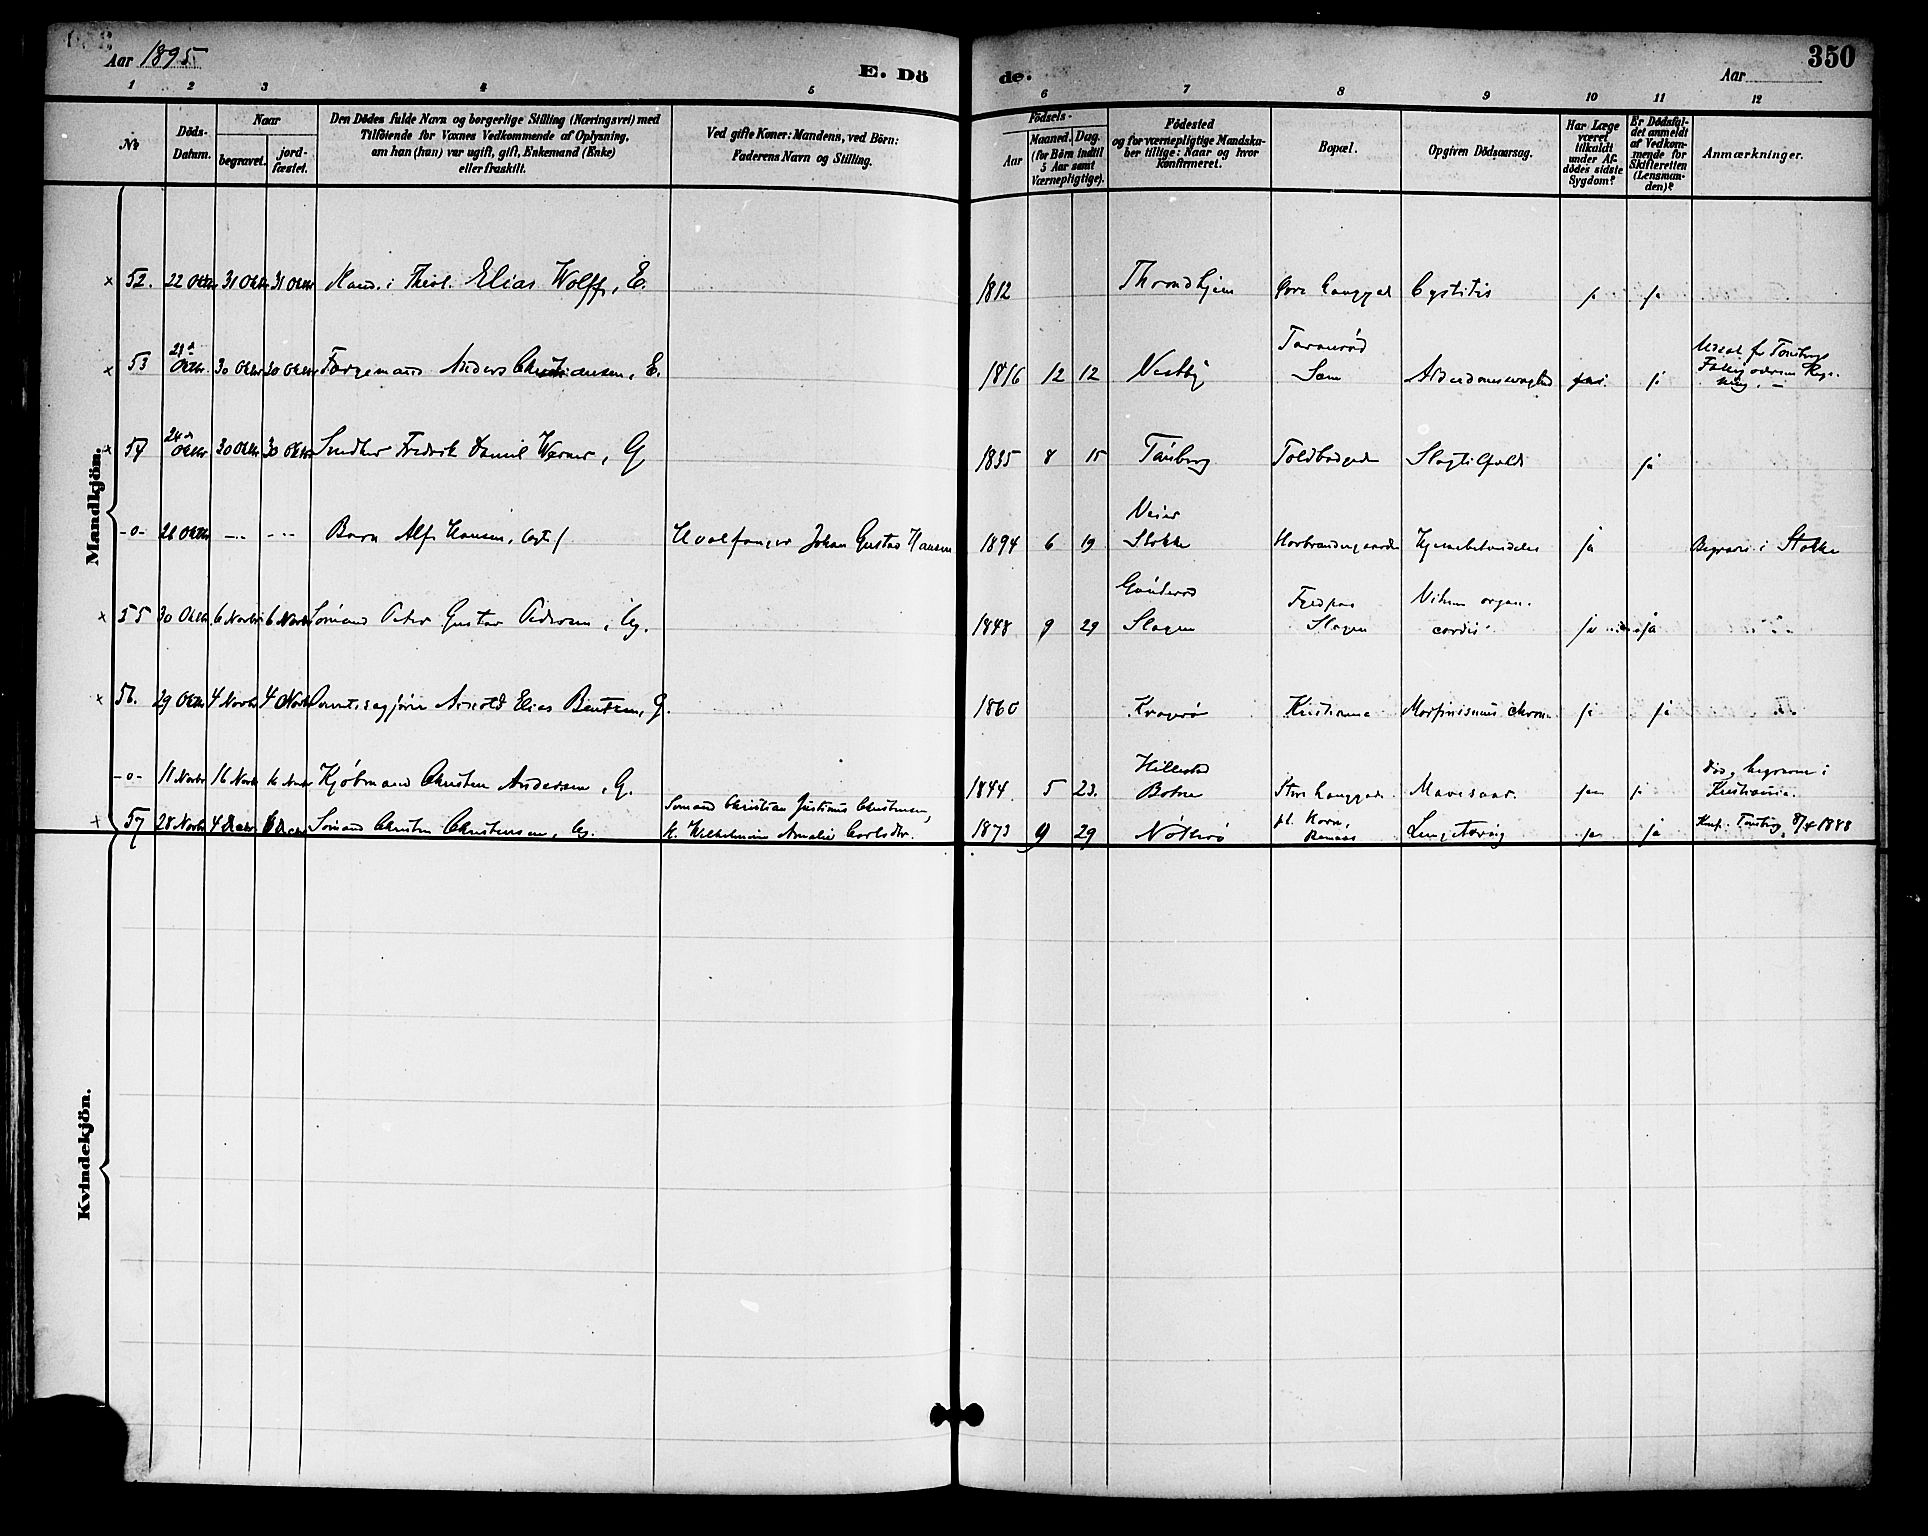 Aar 1895
E. Dö
de.
Aar
350
1 2 3 4 5 6 7 8 9 10 11 12
No
Döds-
Datum.
Naar
begravet.
jord-
fæstet.
Den Dödes fulde Navn og borgerlige Stilling (Næringsvei) med
Tilföiende for Voxnes Vedkommende af Oplysning,
om han (hun) var ugift, gift, Enkemand (Enke)
eller fraskilt.
Ved gifte Koner: Mandens, ved Börn:
Faderens Navn og Stilling.
Födsels-
Aar
Maaned. Dag.
(for Börn indtil
5 Aar samt
Værnepligtige).
Födested
og for værnepligtige Mandska-
ber tillige: Naar og hvor
Konfirmeret.
Bopæl.
Opgiven Dödsaarsag.
Har Læge
været
tilkaldt
under Af-
dödes sidste
Sygdom?
Er Dödsfal-
det anmeldt
af Vedkom-
mende for
Skifteretten
(Lensman-
den)?
Anmærkninger.
Mandkjön.
52. 22 Oktbr 31 Oktbr 31 Oktbr Kand. i Theol. Elias Wolff, E. 1812 Throndhjem Cystitis ja ja
53 21 Oktbr. 30 Oktbr 30 Oktbr Færgemand Anders Christiansen, E. 1816 12 12 Vestby Sem Alderdomssvaghed ja
54 24 Oktbr 30 Oktbr 30 Oktbr Snedker Fredrik Daniel Werner, G 1835 8 15 Tønsberg Toldbodgad Slagtilfælde ja
-o- 26 Oktbr Barn Alf Hansen, Hvalfanger Johan Gustav Hansen 1894 6 19 Stokke Hjernebetændelse ja Begravet i Stokke
55 30 Oktbr 6 Novbr 6 Novbr Sømand Peter Gustav Pedersen, Ug. 1848 9 29 Slagen Slagen Vitium organ. cordis ja ja
56. 29 Oktbr 4 Novbr 4 Novbr Arnold Elias Bentzen, G. 1860 Kragerø Kristiania Morfinismus chron. ja ja
-o- 11 Novbr 16 Novbr 16 Novbr Kjøbmand Christen Andersen, G. 1844 5 23. Hillestad Botne Store Langgade Mavesaar. ja ja Død, begraven i Kristiania.
57 28 Novbr 4 Decbr Sømand Christen Christensen, Ug. Sømand Christian Justinus Christensen, H. Wilhelmine Amalie Carlsdtr. 1873 9 29 Nøtterø Lungetæring ja ja Konf. Tønsberg 8/4 1888
Kvindekjön.